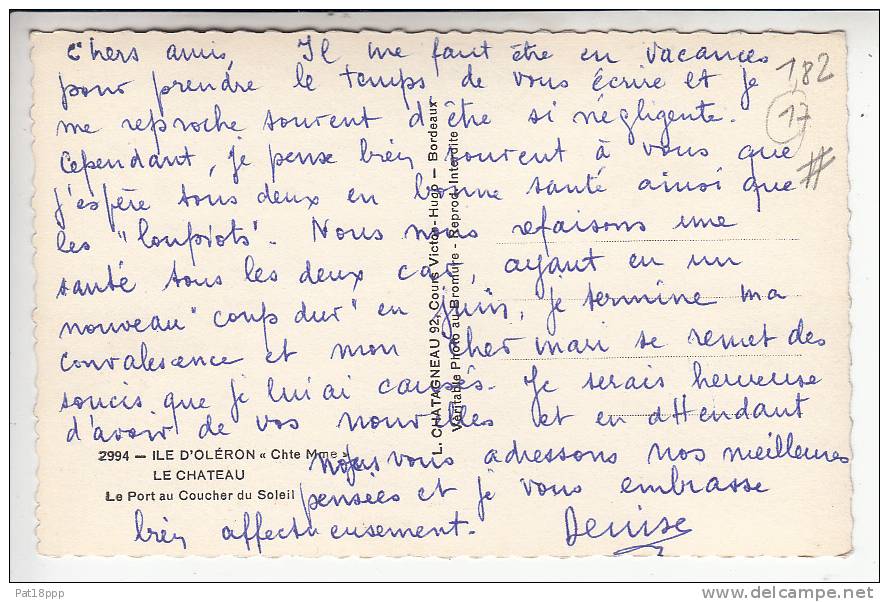 Chers amis, Il me faut être en vacances
pour prendre le temps de vous écrire et je
me reproche souvent d'être si négligente.
Cependant, je pense bien souvent à vous que
j'espère tous deux en bonne santé ainsi que
les "loupiots". Nous nous refaisons une
santé tous les deux car, ayant eu un
nouveau "coup dur" en juin, je termine ma
convalescence et mon cher mari se remet des
soucis que je lui ai causés. Je serais heureuse
d'avoir de vos nouvelles et en attendant
nous vous adressons nos meilleures
pensées et je vous embrasse
bien affectueusement. Denise
1,82
17
#
2994 — ILE D'OLÉRON « Chte Mme »
LE CHATEAU
Le Port au Coucher du Soleil
L. CHATAGNEAU 92, Cours Victor-Hugo — Bordeaux
Véritable Photo au Bromure - Reprod. Interdite
Pat18ppp
www.delcampe.net